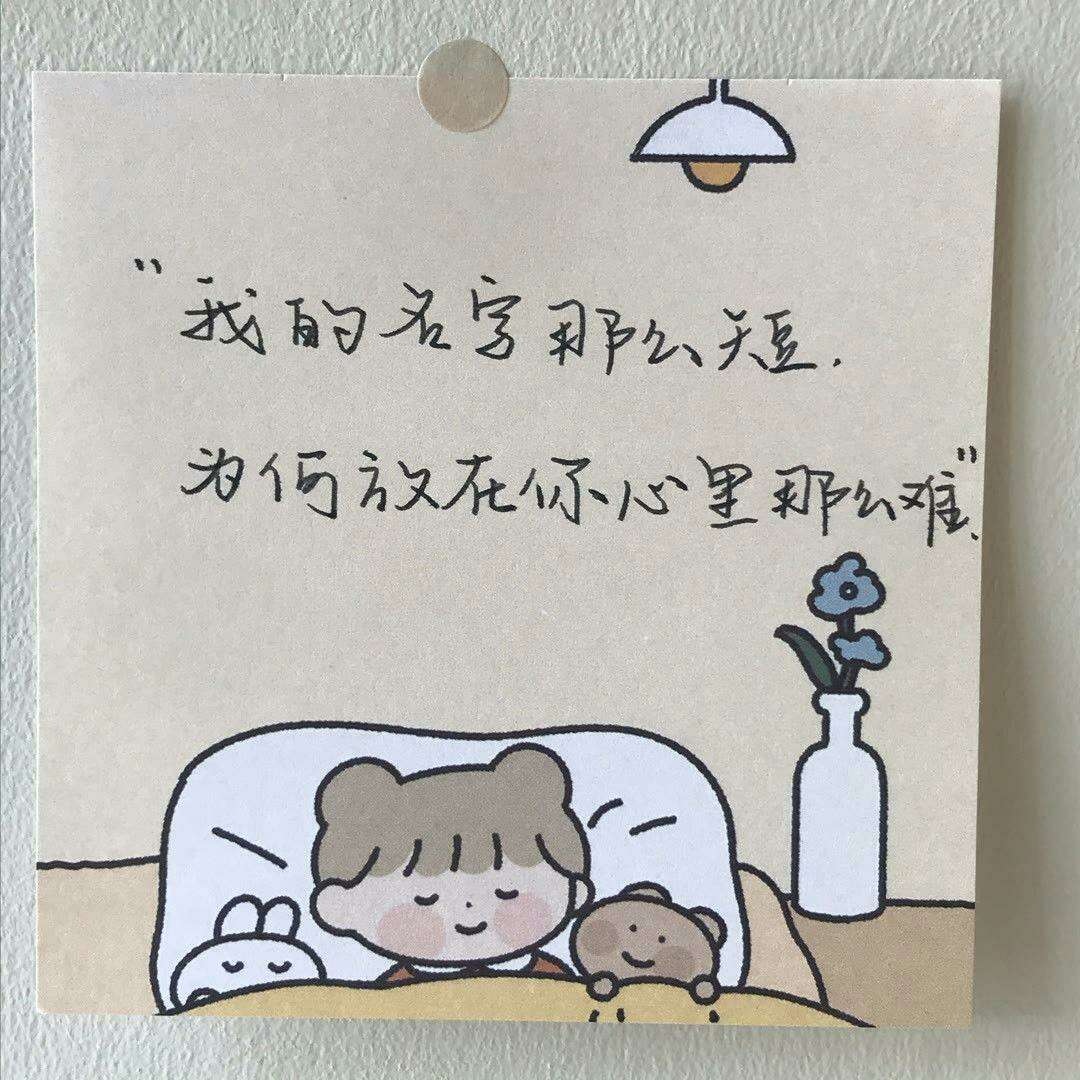 "我的名字那么短.
为何放在你心里那么难".